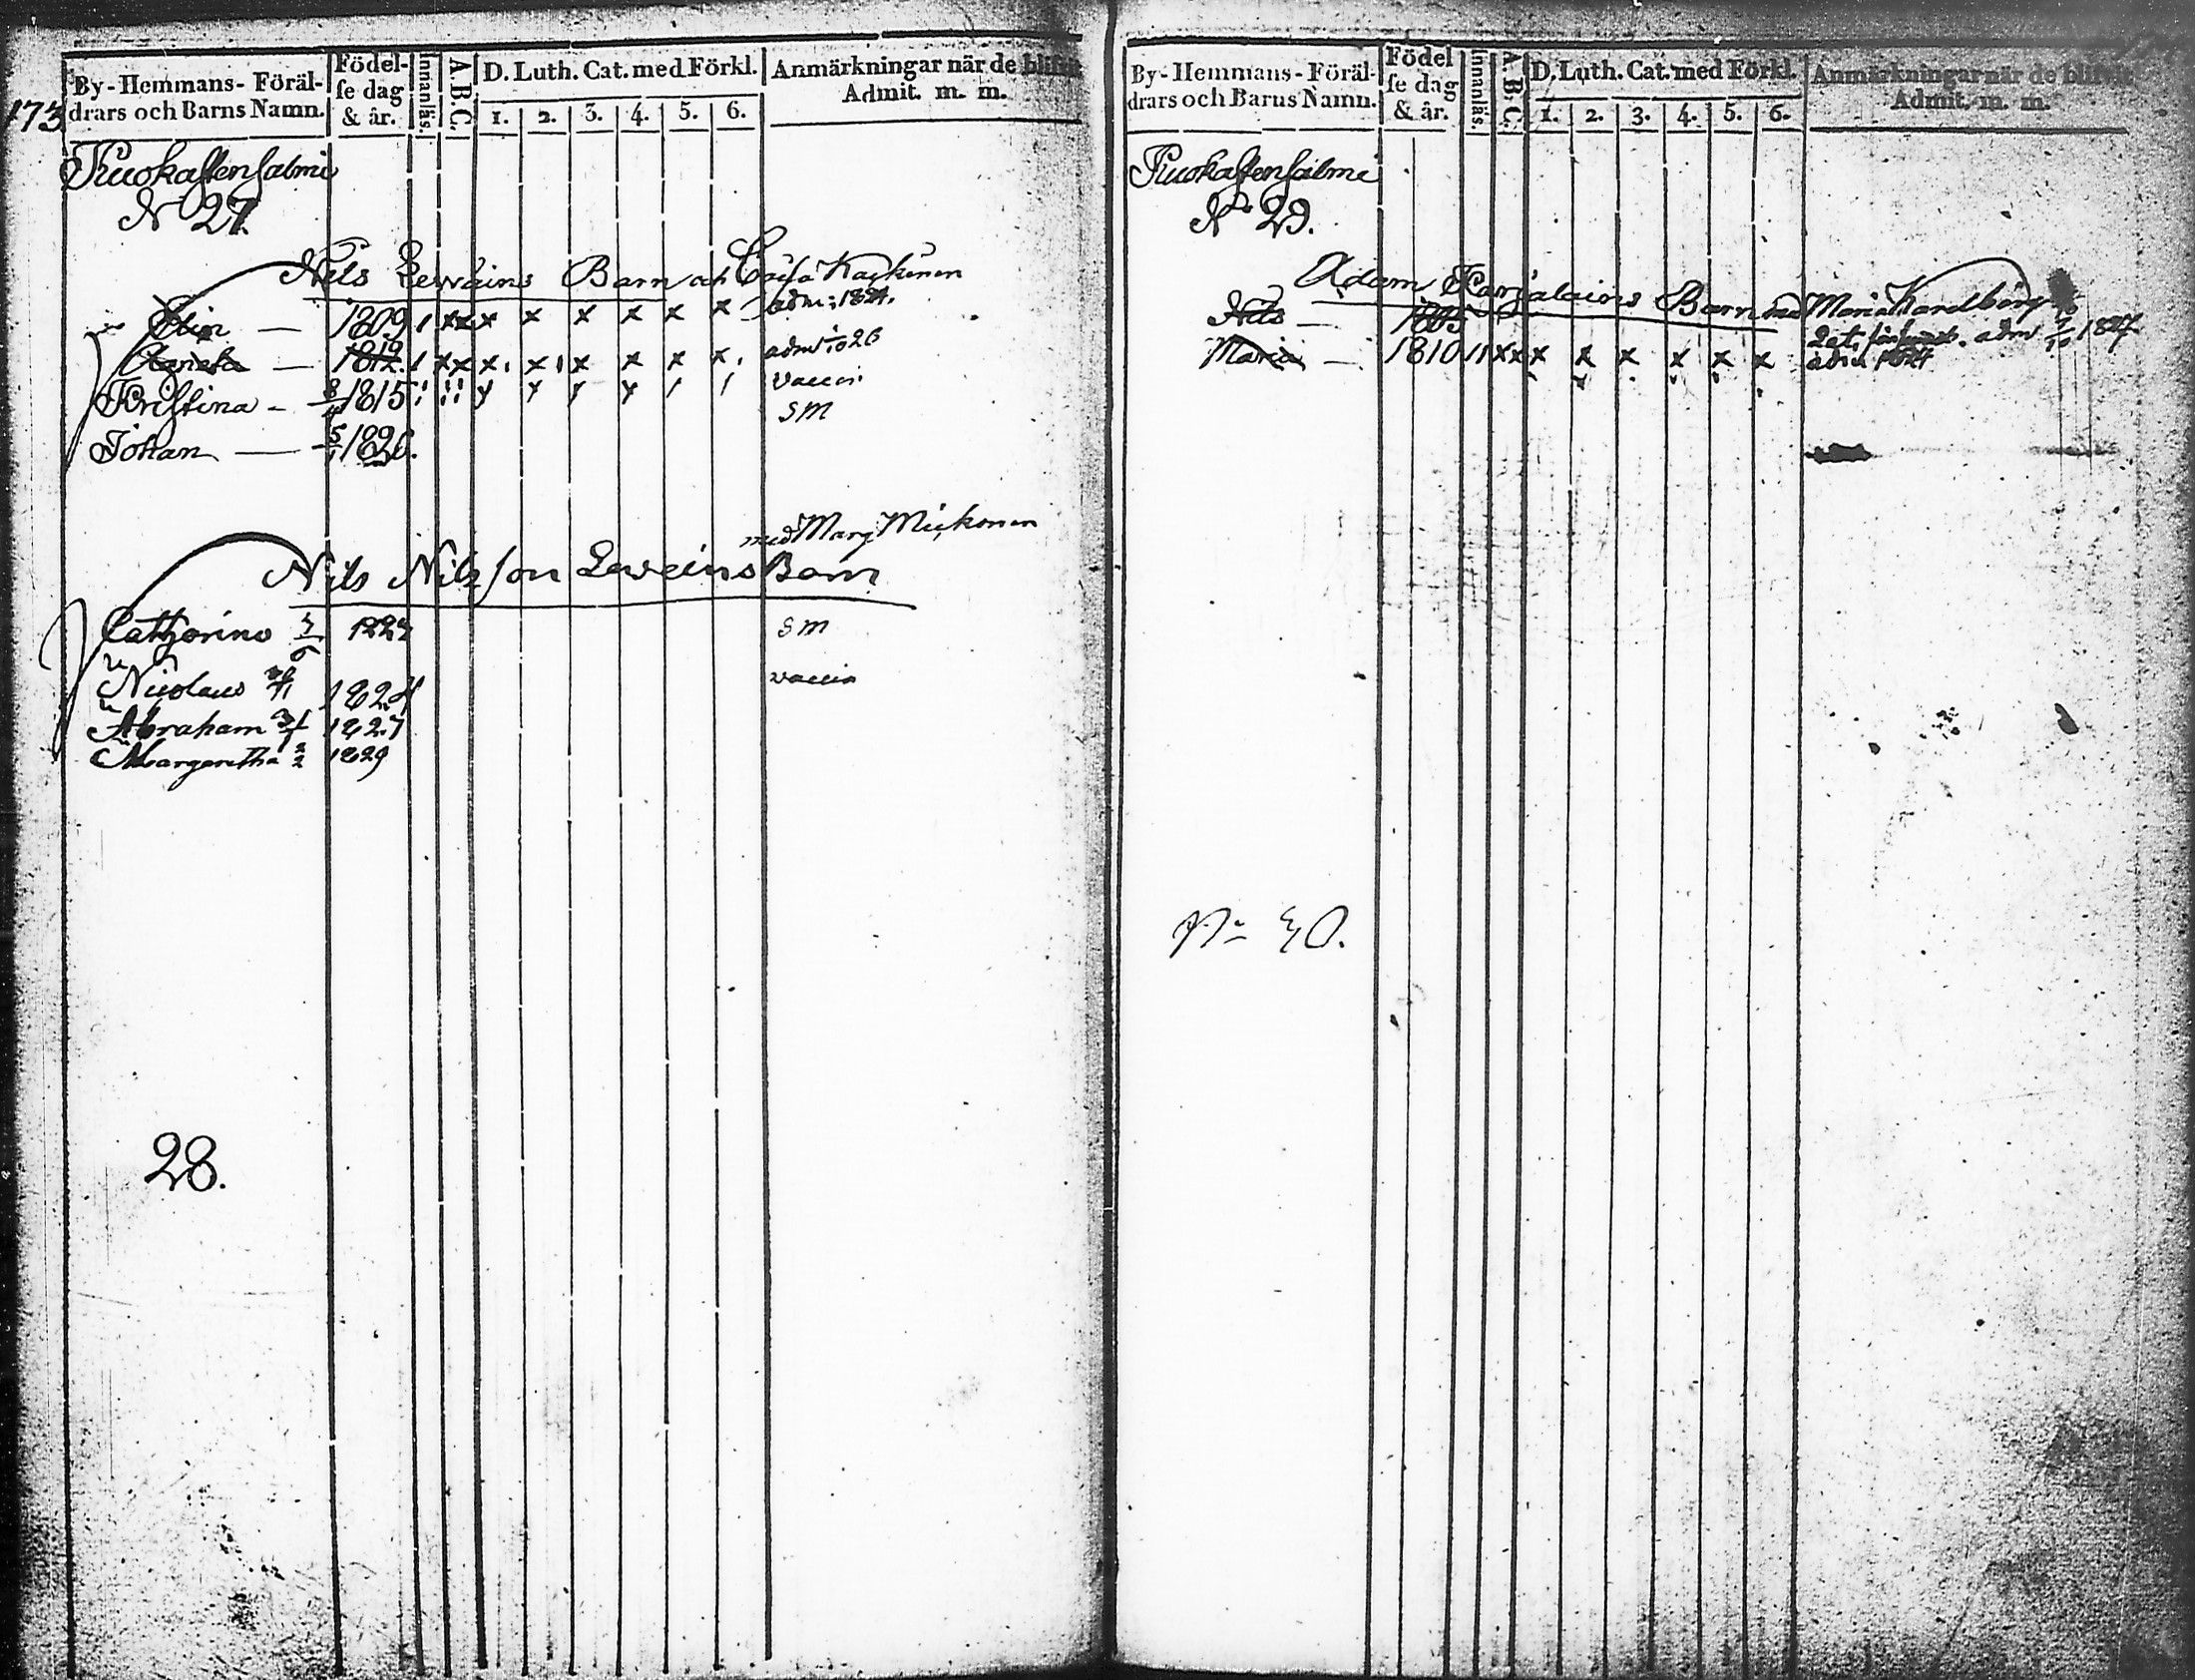 173
By-Hemmans-Föräl-
drars och Barns Namn.
Födel-
se dag
& år.
Innanläs.
A.B.C.
D. Luth. Cat. med Förkl.
1. 2. 3. 4. 5. 6.
Anmärkningar när de blifvit
Admit. m. m.
Ruokastensalmi
N 27.
Nils Lewains Barn och Caisa
adm: 1824.
Elin — 1809 / x x x x x x x x
Agneta — 1812. / x x x x x x x x adm 1826
Kristina — 1815 vaccin
SM
Johan — 5/1 1826.
med Marg Miekonen
Nils Nilsson Leweins Barn
Catharina 1823 SM
Nicolaus 1824 vaccin
Abraham 1827
Margaretha 2/2 1829
28.
By-Hemmans-Föräl-
drars och Barns Namn.
Födel
se dag
& år.
Innanläs.
A.B.C.
D. Luth. Cat. med Förkl.
1. 2. 3. 4. 5. 6.
Anmärkningar när de blifvit
Admit. m. m.
Ruokastensalmi
No 29.
Adam Karjalains Barn med Maria
Nils — 1805 adm 1827
Maria — 1810 // x x x x x x x x adm 1824
No 30.